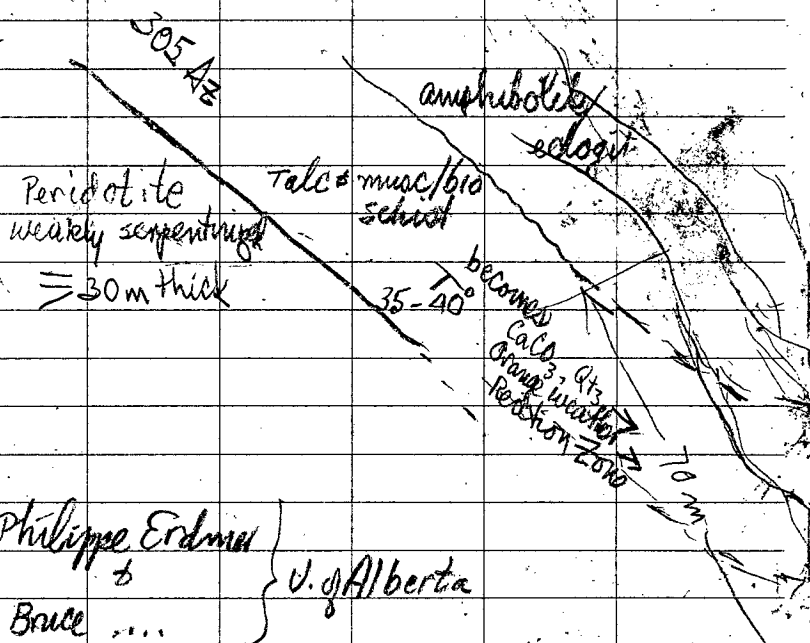 305 Az
amphibolite
eclogit
Peridotite
weakly serpentinized
≥ 30m thick
Talc & musc/bio
schist
35-40°
becomes
CaCO3, Qtz
Orange weather
Reaction Zone
70 m
Philippe Erdmer
&
Bruce ....
U. of Alberta